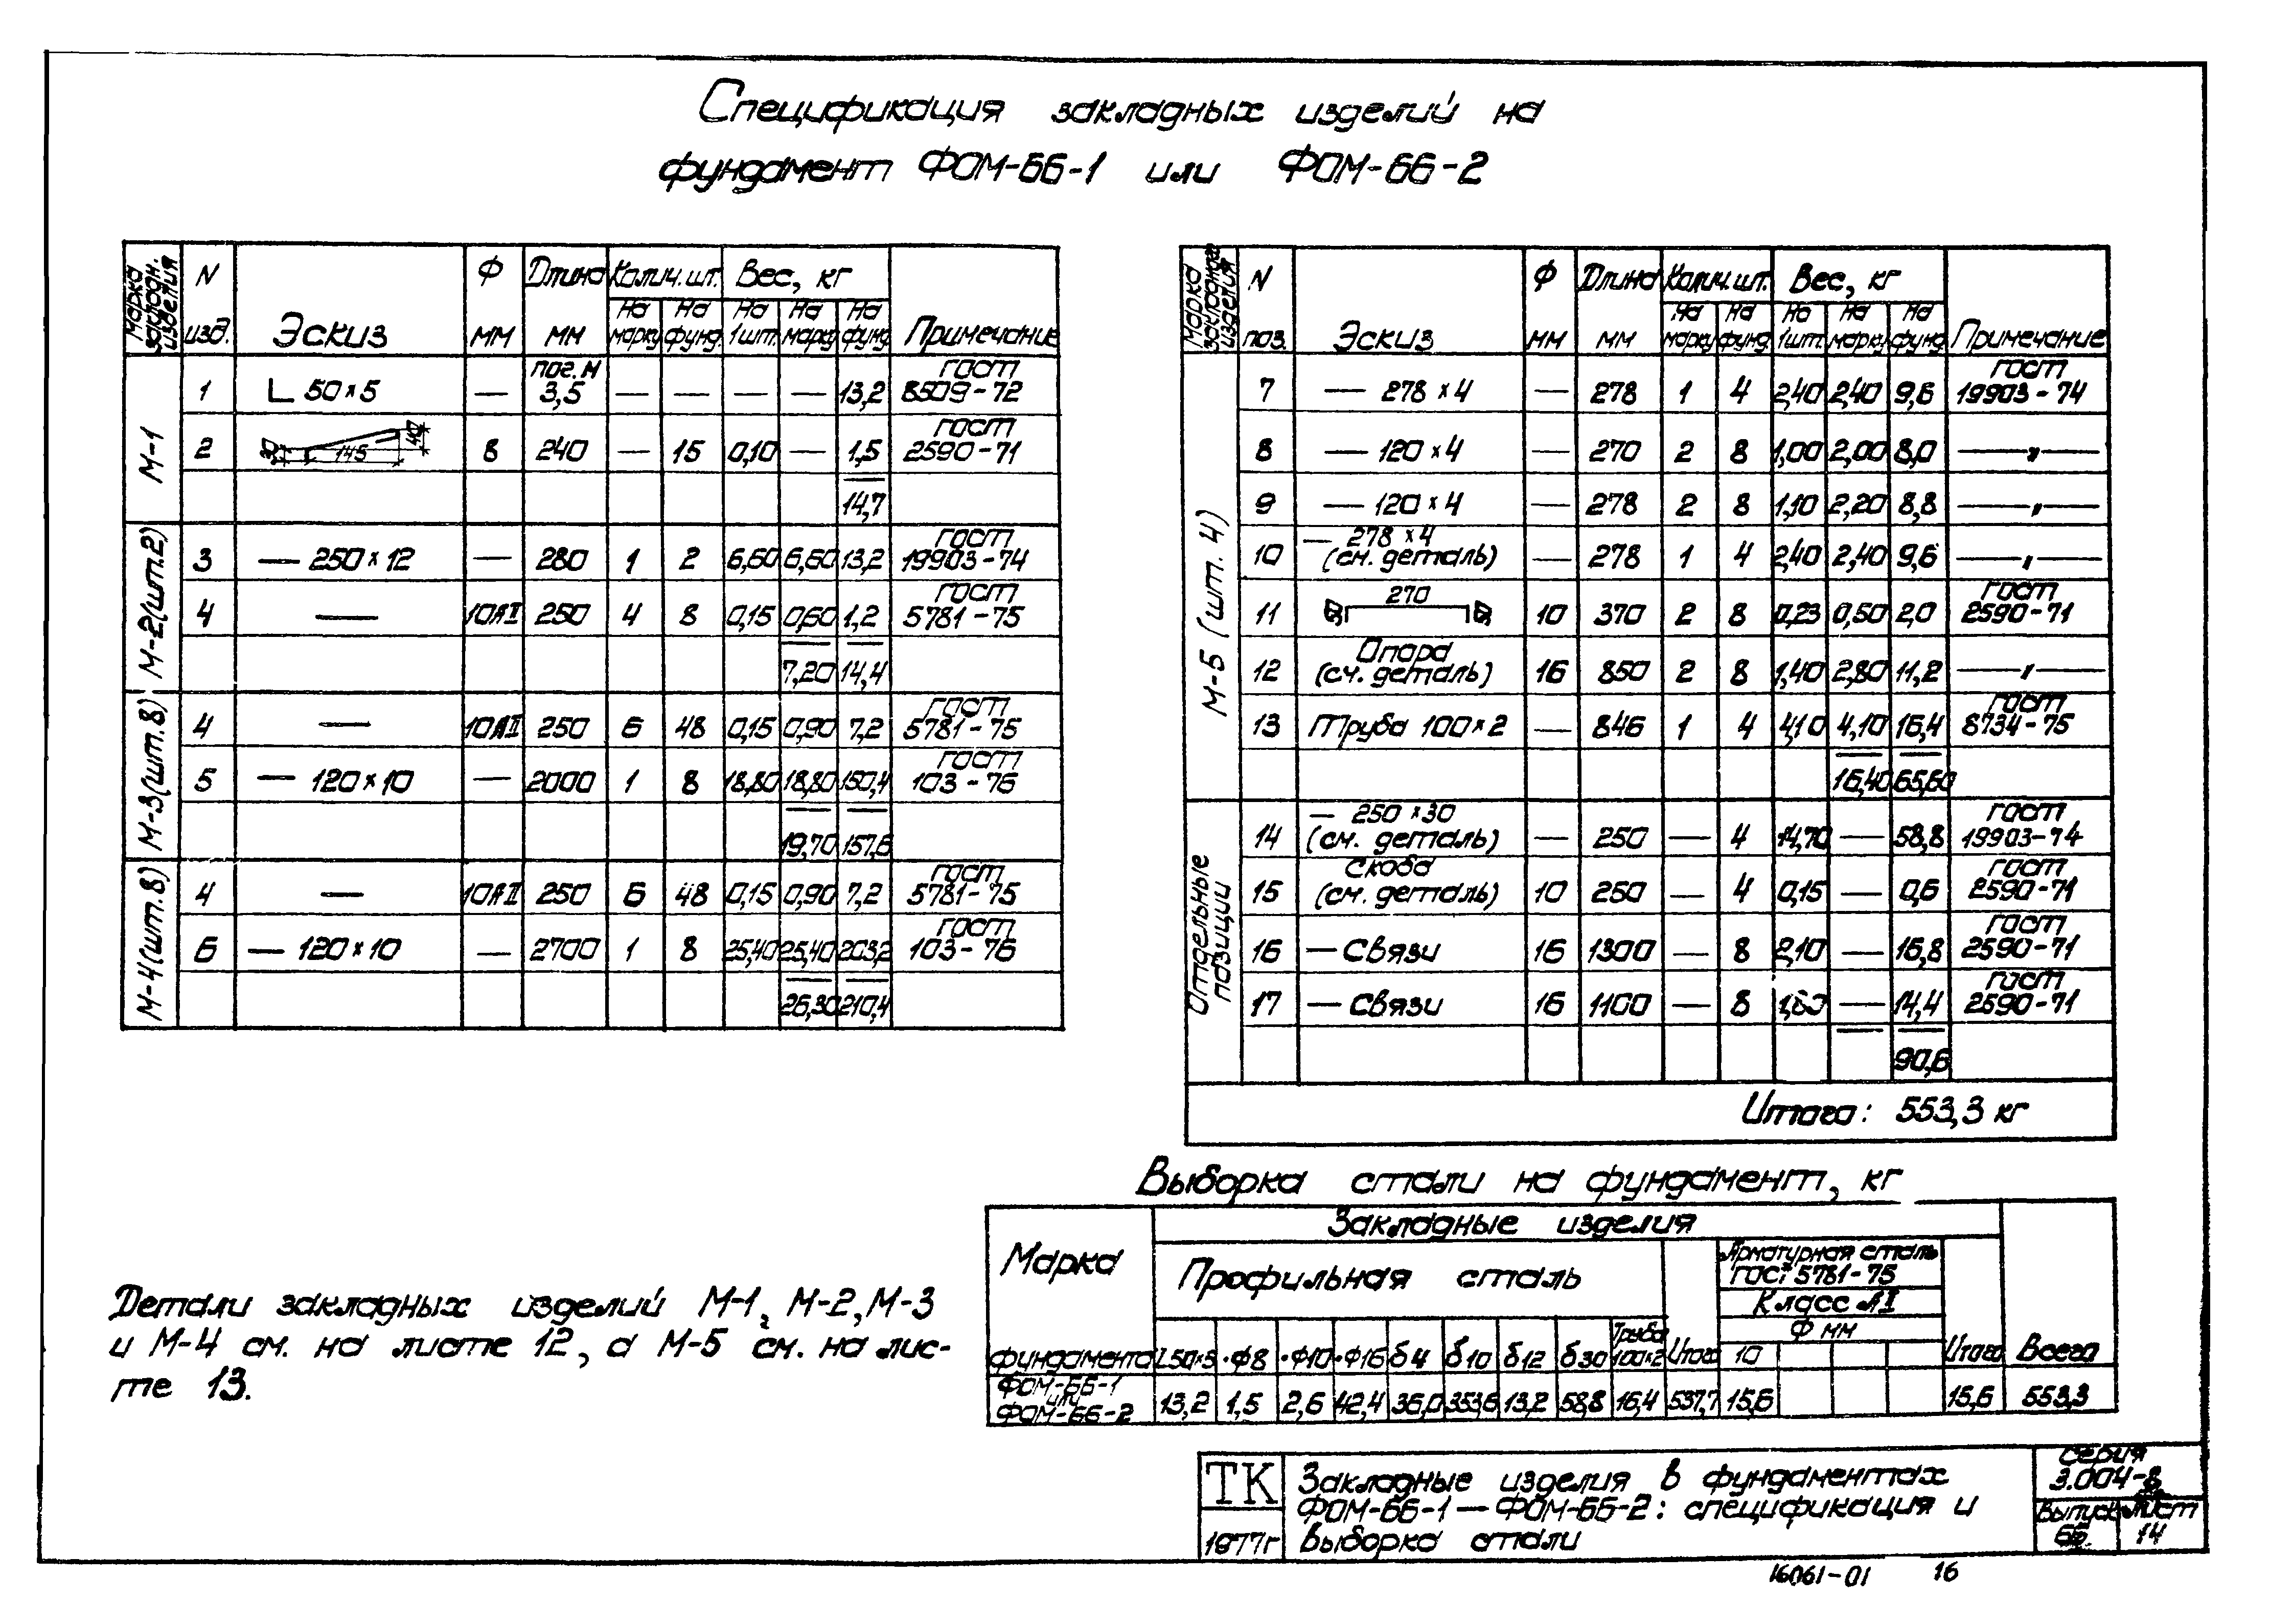 Спецификация закладных изделий на
фундамент ФОМ-6Б-1 или ФОМ-6Б-2
Марка закладн. изделия | N изд. | Эскиз | Ф мм | Длина мм | Колич. шт. На марку | На фунд. | Вес, кг На 1шт. | На марку | На фунд. | Примечание
М-1
1 | L 50×5 | — | пог.м 3,5 | — | — | — | — | 13,2 | ГОСТ 8509-72
2 | 145 | 8 | 240 | — | 15 | 0,10 | — | 1,5 | ГОСТ 2590-71
14,7
М-2(шт.2)
3 | — 250×12 | — | 280 | 1 | 2 | 6,60 | 6,60 | 13,2 | ГОСТ 19903-74
4 | — | 10АII | 250 | 4 | 8 | 0,15 | 0,60 | 1,2 | ГОСТ 5781-75
7,20 | 14,4
М-3(шт.8)
4 | — | 10АII | 250 | 6 | 48 | 0,15 | 0,90 | 7,2 | ГОСТ 5781-75
5 | — 120×10 | — | 2000 | 1 | 8 | 18,80 | 18,80 | 150,4 | ГОСТ 103-76
19,70 | 157,6
М-4(шт.8)
4 | — | 10АII | 250 | 6 | 48 | 0,15 | 0,90 | 7,2 | ГОСТ 5781-75
6 | — 120×10 | — | 2700 | 1 | 8 | 25,40 | 25,40 | 203,2 | ГОСТ 103-76
26,30 | 210,4
Марка закладного изделия | N поз. | Эскиз | Ф мм | Длина мм | Колич. шт. На марку | На фунд. | Вес, кг На 1шт. | На марку | На фунд. | Примечание
М-5 (шт. 4)
7 | — 278×4 | — | 278 | 1 | 4 | 2,40 | 2,40 | 9,6 | ГОСТ 19903-74
8 | — 120×4 | — | 270 | 2 | 8 | 1,00 | 2,00 | 8,0 | —„—
9 | — 120×4 | — | 278 | 2 | 8 | 1,10 | 2,20 | 8,8 | —„—
10 | — 278×4 (см. деталь) | — | 278 | 1 | 4 | 2,40 | 2,40 | 9,6 | —„—
11 | 270 | 10 | 370 | 2 | 8 | 0,23 | 0,50 | 2,0 | ГОСТ 2590-71
12 | Опора (см. деталь) | 16 | 850 | 2 | 8 | 1,40 | 2,80 | 11,2 | —„—
13 | Труба 100×2 | — | 846 | 1 | 4 | 4,10 | 4,10 | 16,4 | ГОСТ 8734-75
16,40 | 65,60
Отдельные позиции
14 | — 250×30 (см. деталь) | — | 250 | — | 4 | 14,70 | — | 58,8 | ГОСТ 19903-74
15 | Скоба (см. деталь) | 10 | 250 | — | 4 | 0,15 | — | 0,6 | ГОСТ 2590-71
16 | — Связи | 16 | 1300 | — | 8 | 2,10 | — | 16,8 | ГОСТ 2590-71
17 | — Связи | 16 | 1100 | — | 8 | 1,80 | — | 14,4 | ГОСТ 2590-71
90,6
Итого: 553,3 кг
Выборка стали на фундамент, кг
Марка фундамента | Закладные изделия | Всего
Профильная сталь | Итого | Арматурная сталь ГОСТ 5781-75 | Итого
Класс АI
Ф мм
L50×5 | •Ф8 | •Ф10 | •Ф16 | δ4 | δ10 | δ12 | δ30 | Труба 100×2 | 10
ФОМ-6Б-1 или ФОМ-6Б-2 | 13,2 | 1,5 | 2,6 | 42,4 | 36,0 | 353,6 | 13,2 | 58,8 | 16,4 | 537,7 | 15,6 | 15,6 | 553,3
Детали закладных изделий М-1, М-2, М-3
и М-4 см. на листе 12, а М-5 см. на лис-
те 13.
ТК
1977г
Закладные изделия в фундаментах
ФОМ-6Б-1 — ФОМ-6Б-2: спецификация и
выборка стали
Серия
3.004-8
Выпуск Лист
14
16061-01 16